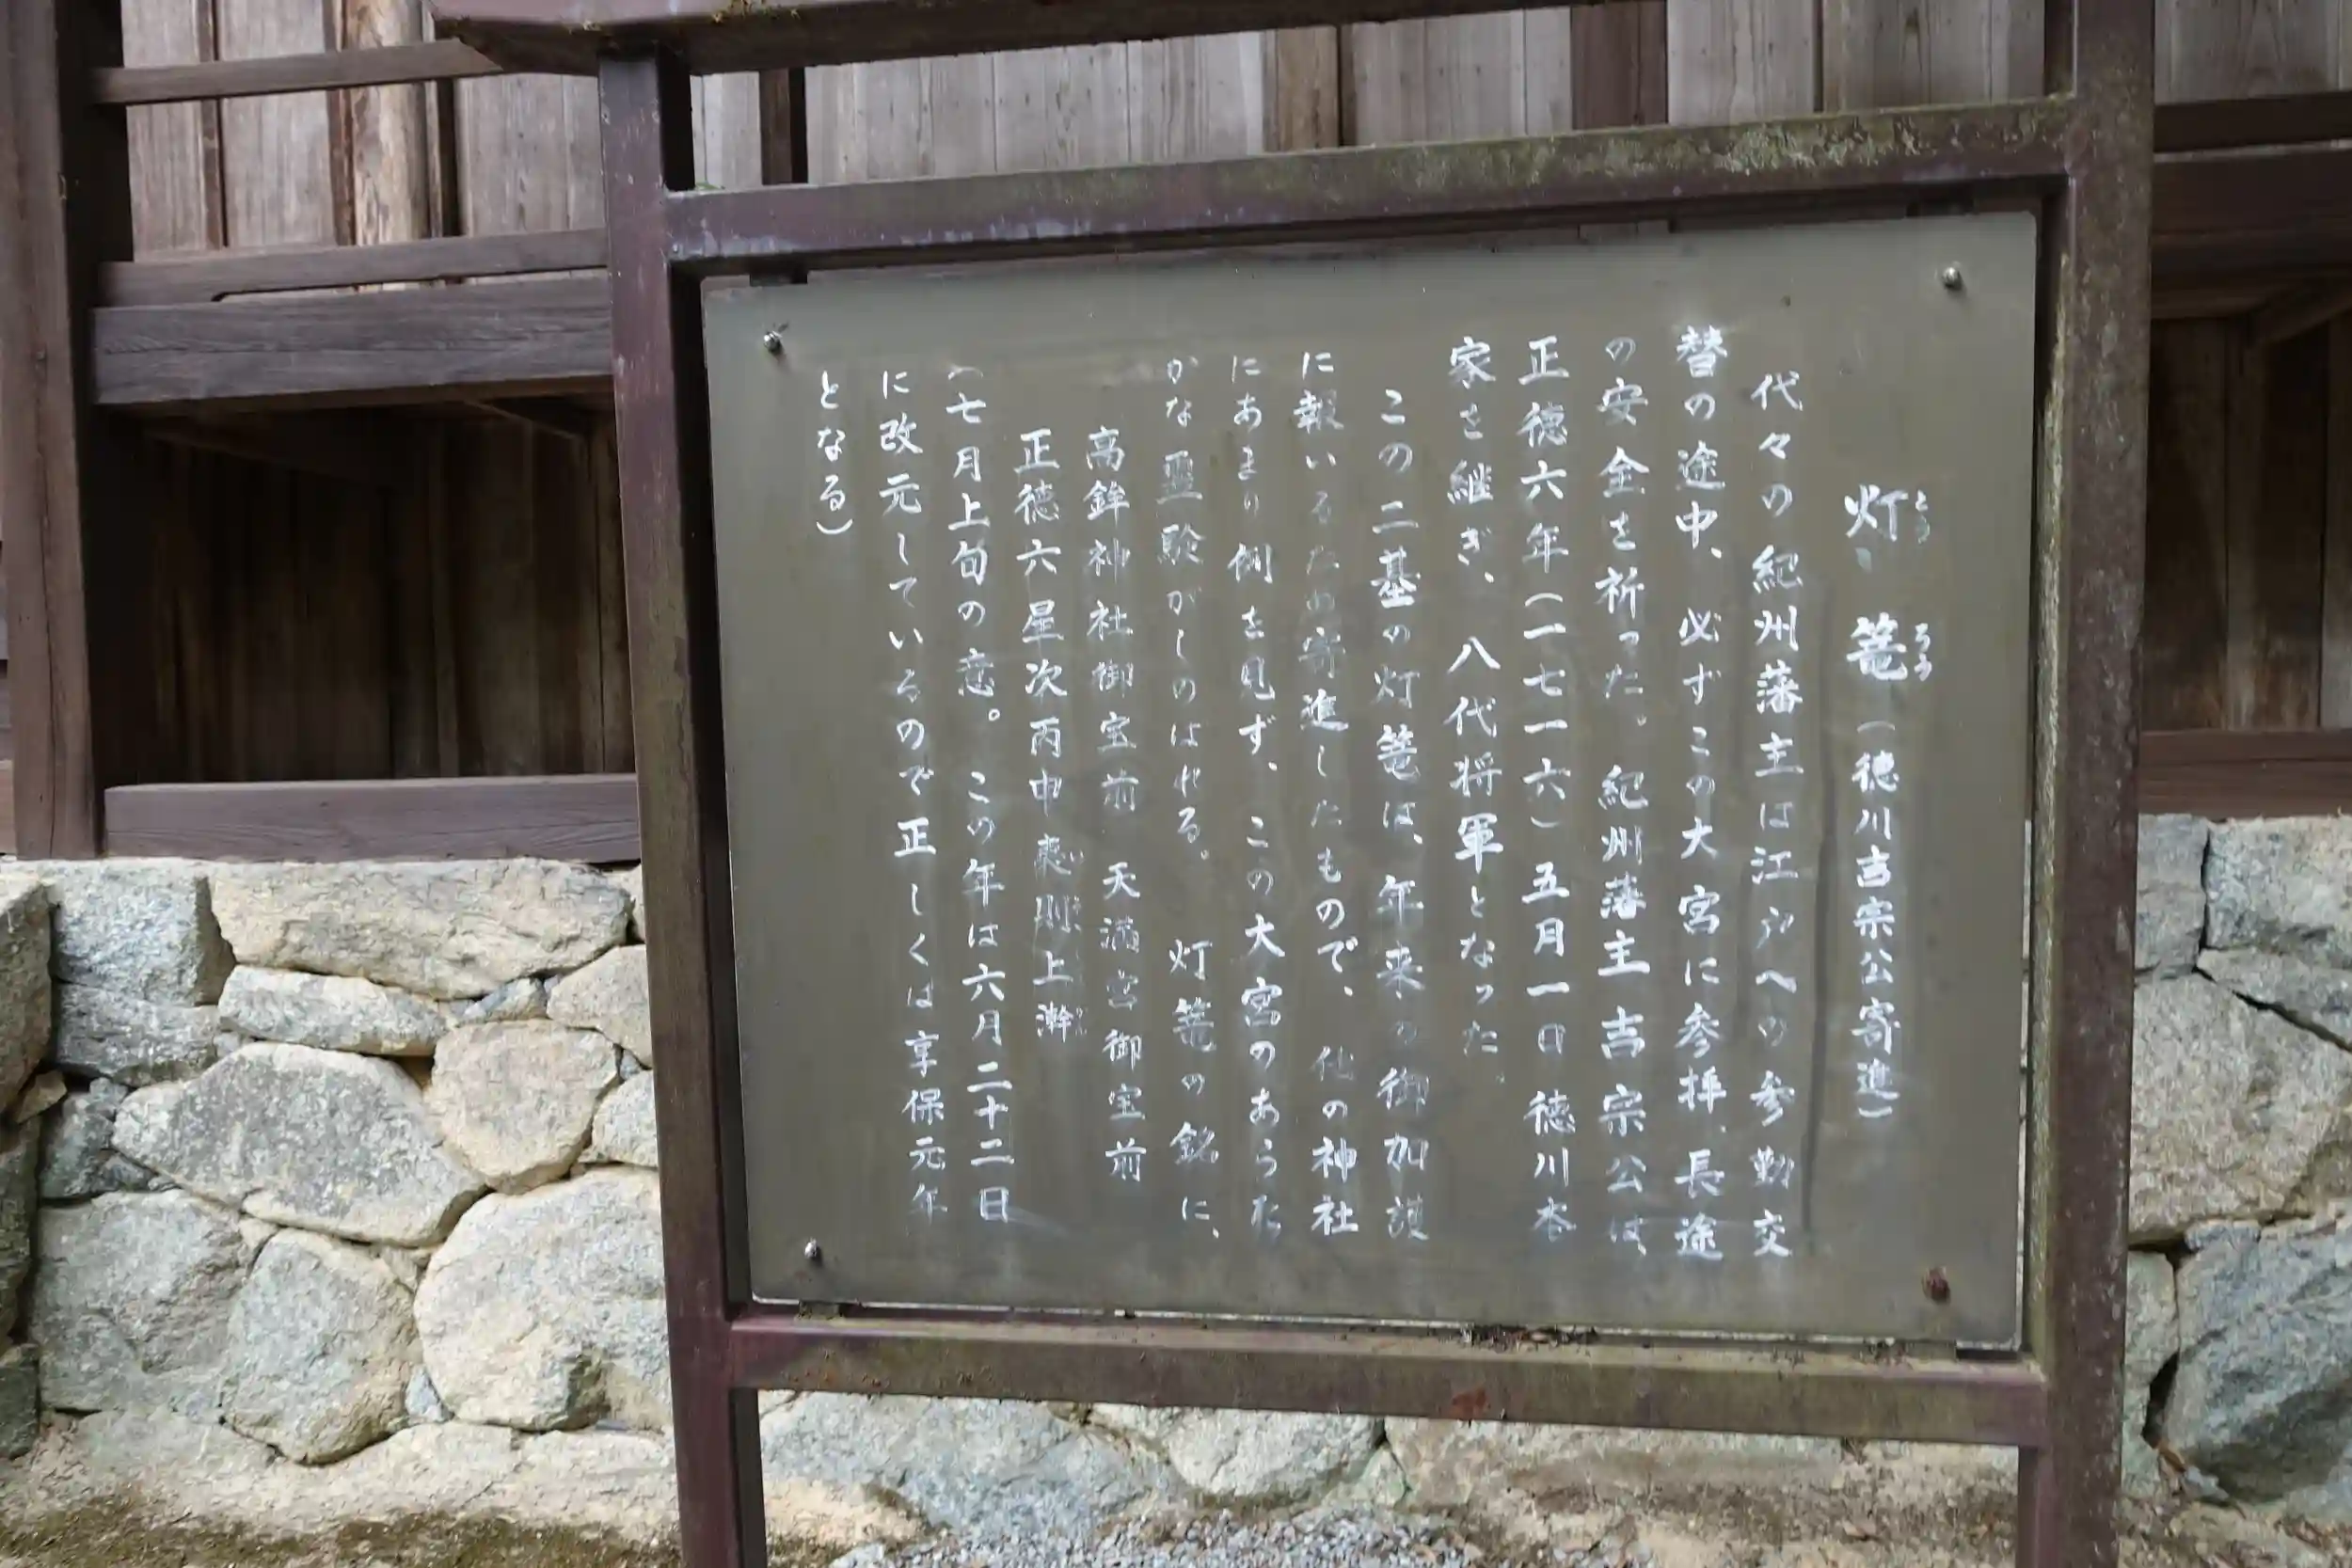 灯篭(徳川吉宗公寄進)
とうろう
代々の紀州藩主は江戸への参勤交
替の途中、必ずこの大宮に参拝、長途
の安全を祈った。紀州藩主吉宗公は、
正徳六年(一七一六)五月一日徳川本
家を継ぎ、八代将軍となった。
この二基の灯篭は、年来の御加護
に報いるため寄進したもので、他の神社
にあまり例を見ず、この大宮のあらた
かな霊験がしのばれる。灯篭の銘に、
高鉾神社御宝前 天満宮御宝前
正徳六星次丙申夷則上澣
(七月上旬の意。この年は六月二十二日
に改元しているので正しくは享保元年
となる)